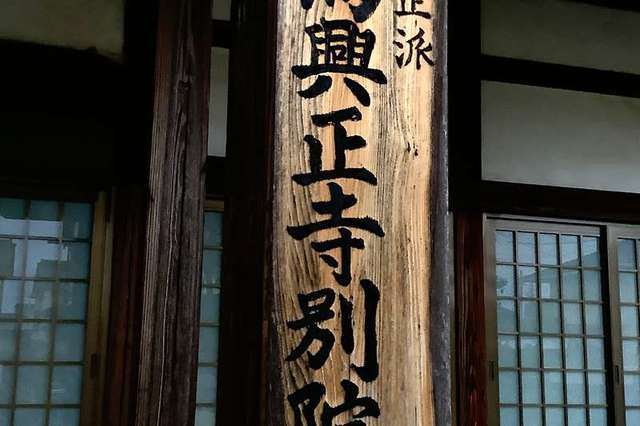 正派
興正寺別院